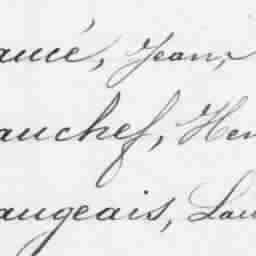 aucé, Jean,
auchef, Hen
augeais, Lau